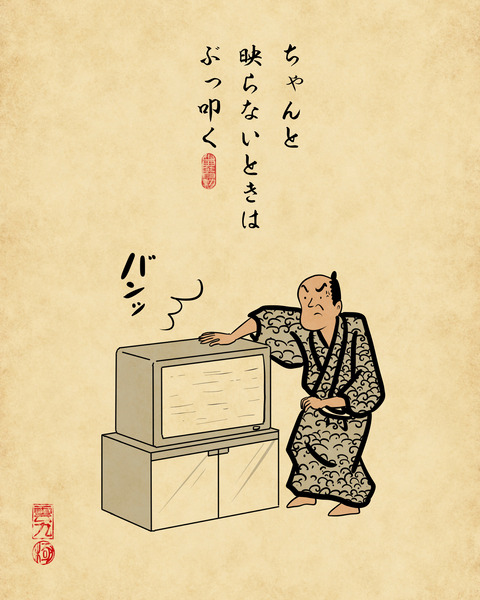 ちゃんと
映らないときは
ぶっ叩く
バンッ